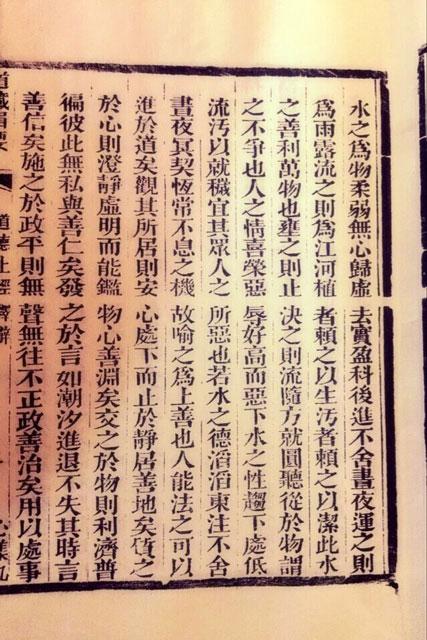 水之為物柔弱無心歸虛去實盈科後進不舍晝夜運之則
為雨露流之則為江河植者賴之以生汚者賴之以潔此水
之善利萬物也壅之則止決之則流隨方就圓聽從於物謂
之不爭也人之情喜榮惡辱好高而惡下水之性趨下處低
流汚以就穢宜其眾人之所惡也若水之德滔滔東注不舍
晝夜冥契恆常不息之機故喻之為上善也人能法之可以
進於道矣觀其所居則安心處下而止於靜居善地矣質之
於心則澄靜虛明而能鑑物心善淵矣交之於物則利濟普
徧彼此無私與善仁矣發之於言如潮汐進退不失其時言
善信矣施之於政平則無聲無往不正政善治矣用以處事
道藏輯要 道德上經